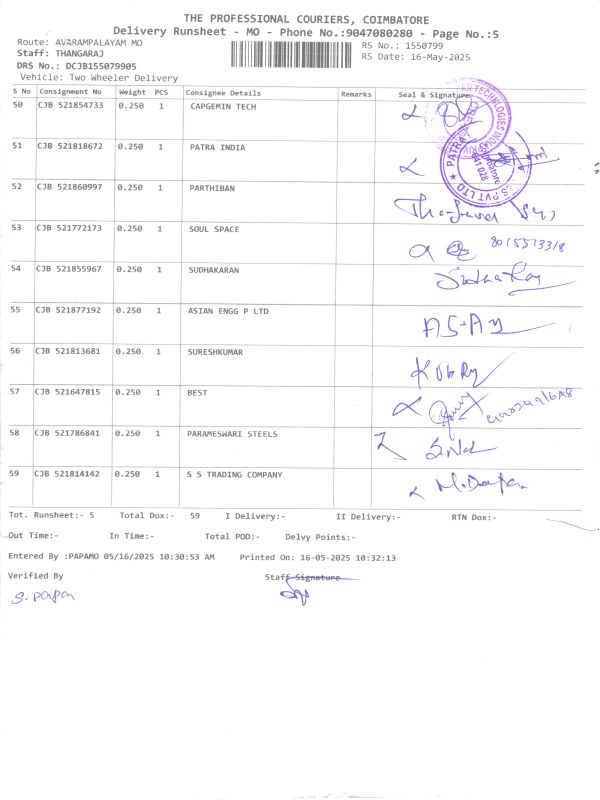 THE PROFESSIONAL COURIERS, COIMBATORE
Delivery Runsheet - MO - Phone No.:9047080280 - Page No.:5
Route: AVARAMPALAYAM MO RS No.: 1550799
Staff: THANGARAJ RS Date: 16-May-2025
DRS No.: DCJB155079905
Vehicle: Two Wheeler Delivery
S No Consignment No Weight PCS Consignee Details Remarks Seal & Signature
50 CJB 521854733 0.250 1 CAPGEMIN TECH
51 CJB 521818672 0.250 1 PATRA INDIA
52 CJB 521860997 0.250 1 PARTHIBAN
53 CJB 521772173 0.250 1 SOUL SPACE
54 CJB 521855967 0.250 1 SUDHAKARAN
55 CJB 521877192 0.250 1 ASIAN ENGG P LTD
56 CJB 521813681 0.250 1 SURESHKUMAR
57 CJB 521647815 0.250 1 BEST
58 CJB 521786841 0.250 1 PARAMESWARI STEELS
59 CJB 521814142 0.250 1 S S TRADING COMPANY
Tot. Runsheet:- 5 Total Dox:- 59 I Delivery:- II Delivery:- RTN Dox:-
Out Time:- In Time:- Total POD:- Delvy Points:-
Entered By :PAPAMO 05/16/2025 10:30:53 AM Printed On: 16-05-2025 10:32:13
Verified By Staff Signature
S. papa